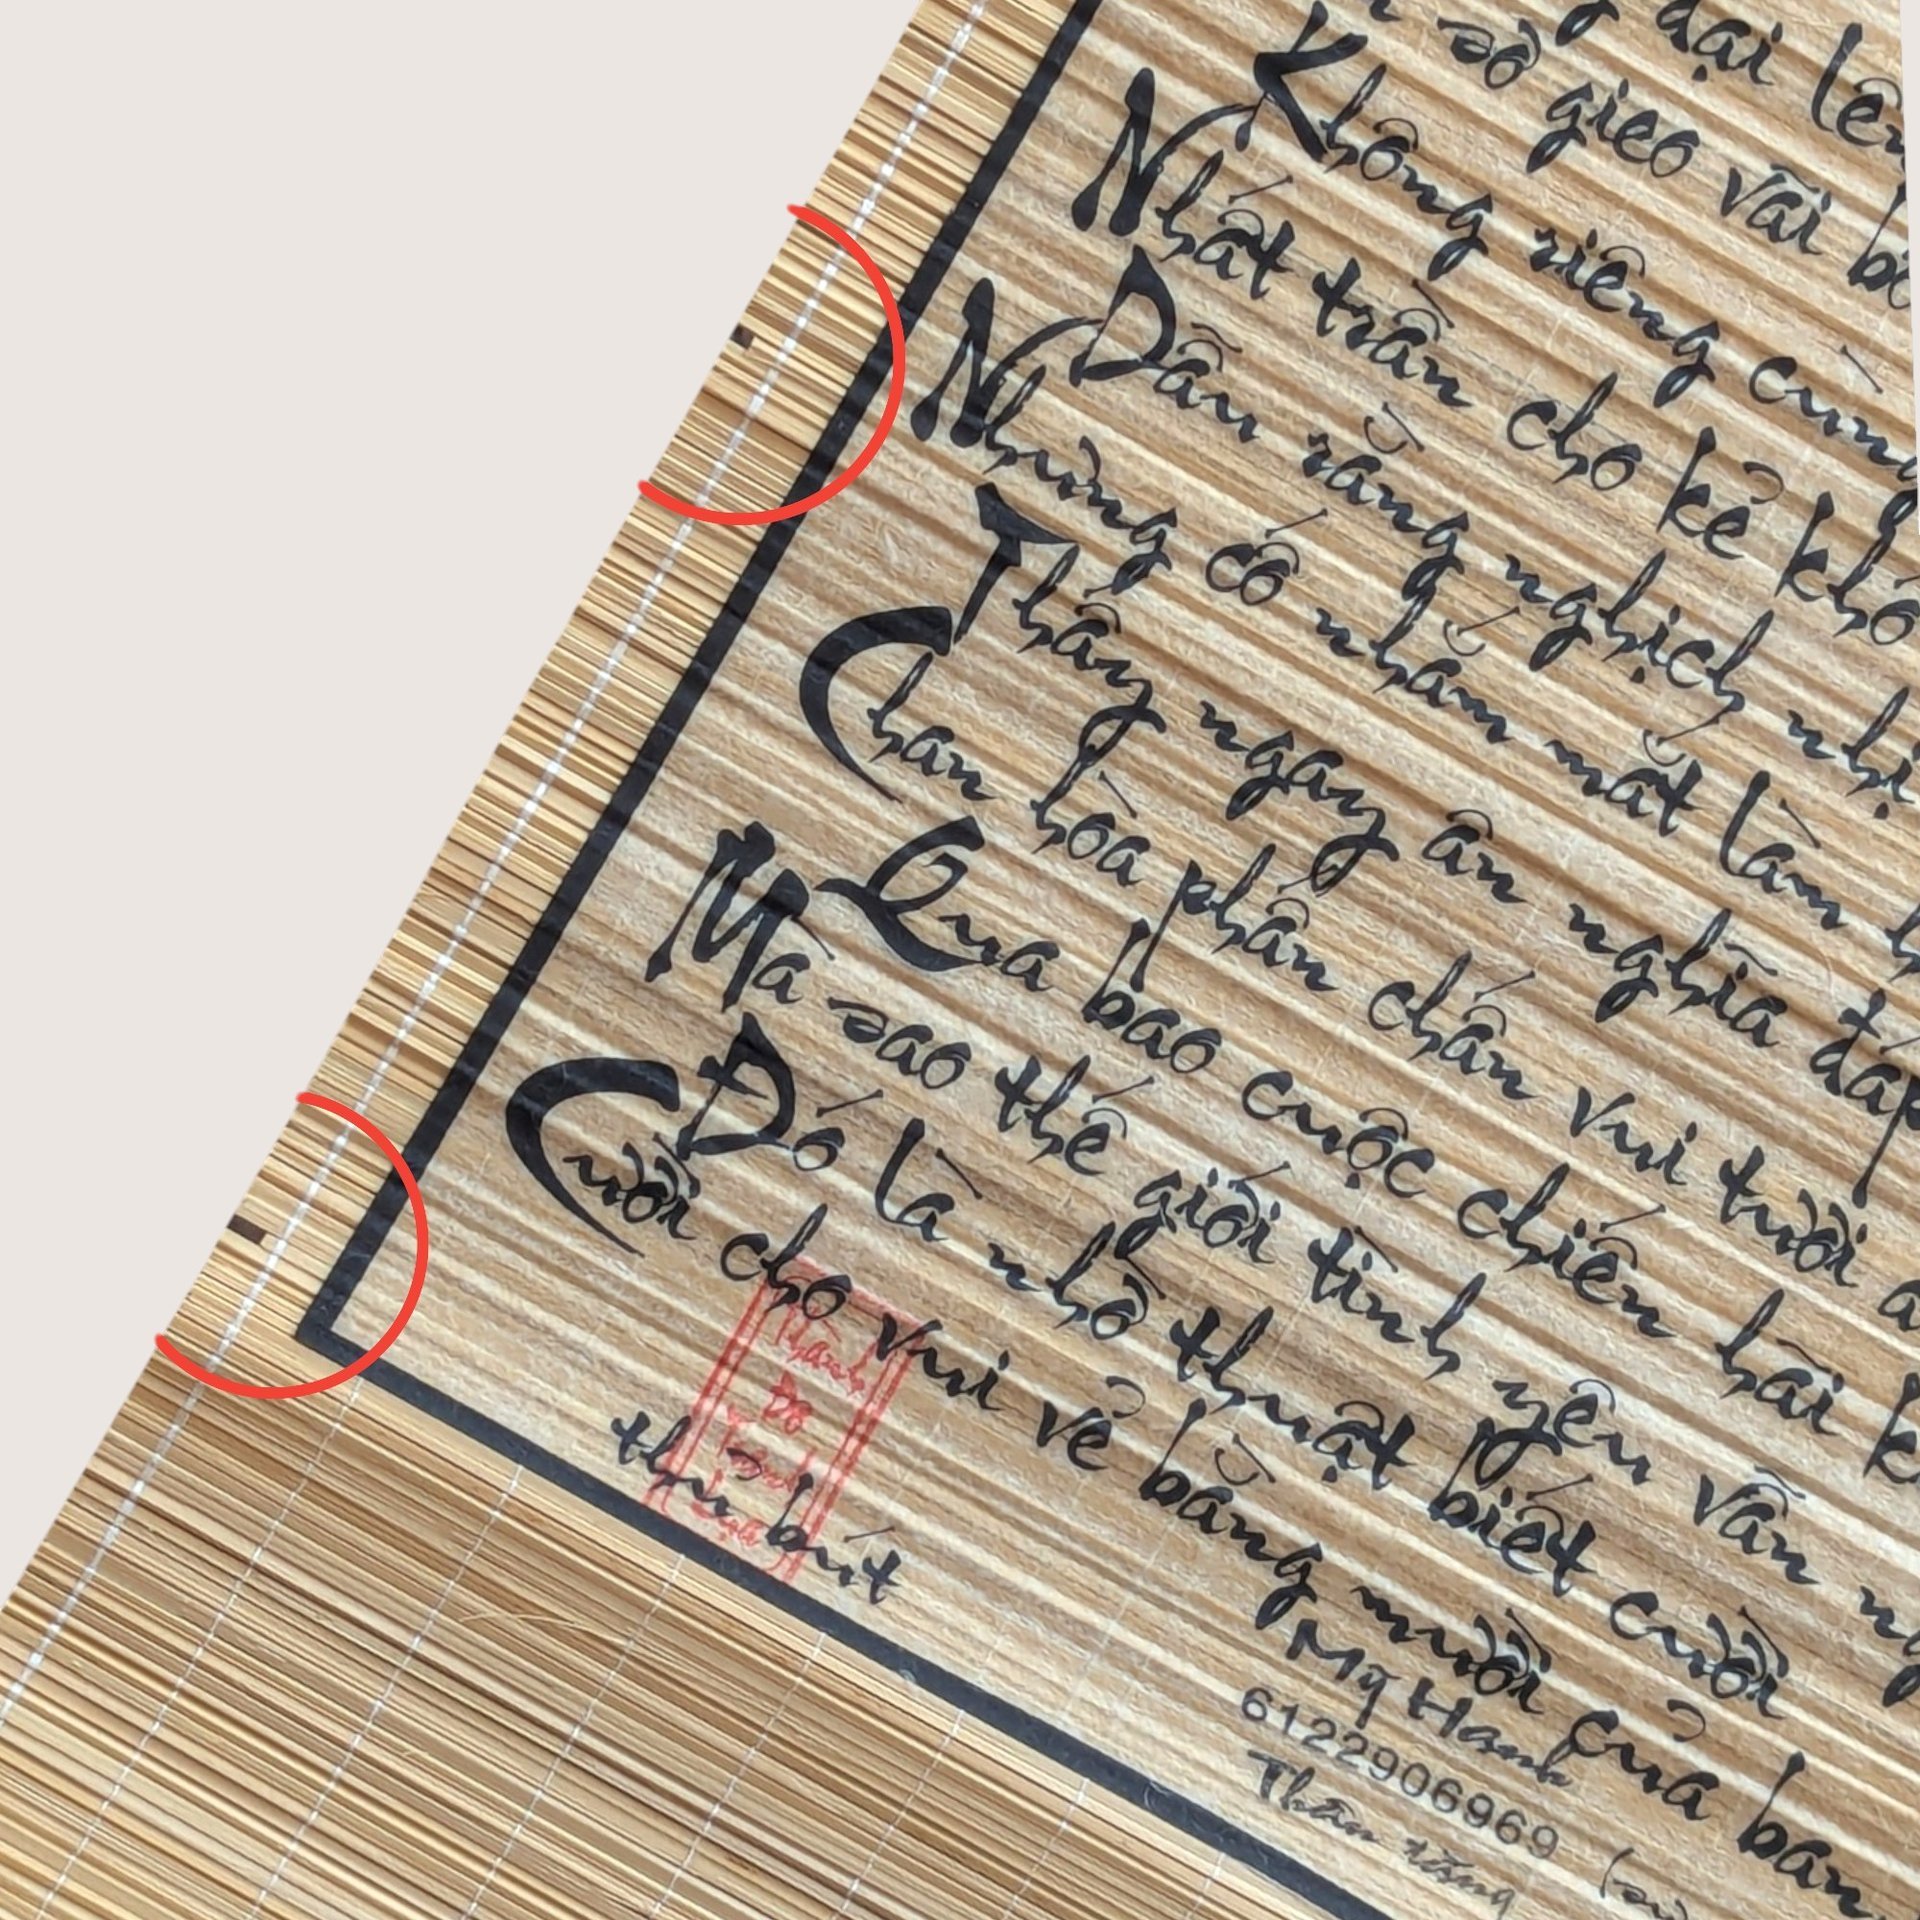 dại lên
sở gieo vãi
Không riêng cùng
Nhất trần cho kẻ
Dẫn rằng nghịch
Nhưng cố nhắm mắt làm
Thầy ngay ân nghĩa đáp
Chan hòa phấn chấn vui tười
Qua bao cuộc chiến hãi
Mà sao thế giới tình yên vẫn
Đó là nhờ thuật biết cười
Cười cho vui vẻ bằng mười của bạn
thủ bút
Mỹ Hanh
6122906969
Thành
Độ